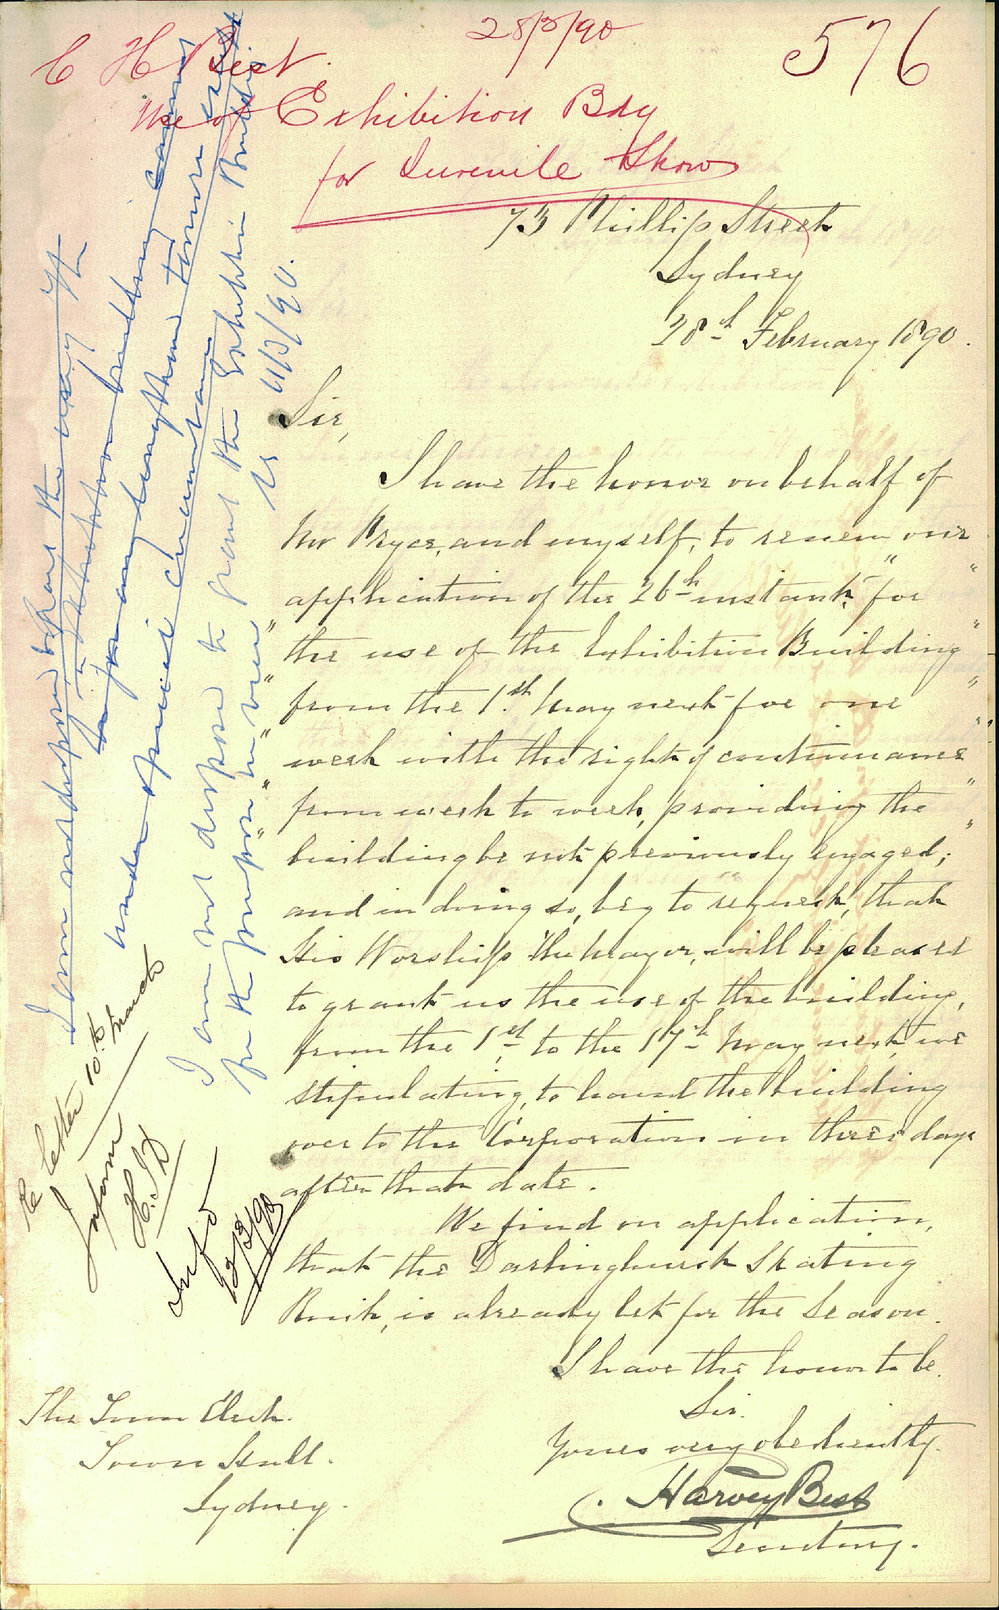 28/2/90
576
C H Best
Use of Exhibition Bdg
for Juvenile Show
73 Phillip Street
Sydney
28th February 1890.
Sir,
I have the honor on behalf of
Mr Pryce, and myself, to renew "our
application of the 26th instant, "for
the use of the Exhibition Building"
from the 1st May next for one "
week with the right of continuance "
from week to week, providing the "
building be not previously engaged, "
and in doing so, beg to request, that
His Worship The Mayor, will be pleased
to grant us the use of the building,
from the 1st to the 17th May next, we
stipulating, to hand the building
over to the Corporation in three days
after that date.
We find on application,
that the Darlinghurst Skating
Rink, is already let for the Season.
I have the honor to be.
Sir.
Yours very obediently.
Harvey Best
Secretary.
The Town Clerk.
Town Hall.
Sydney.
I am not disposed to the use of the
Exhibition building
for any lengthened tenure
under special circumstances
I am not disposed to grant the Exhibition Building
for the purpose in view
4/3/90.
Re letter 10th March
Inform
H.J.D
Infd
12/3/90